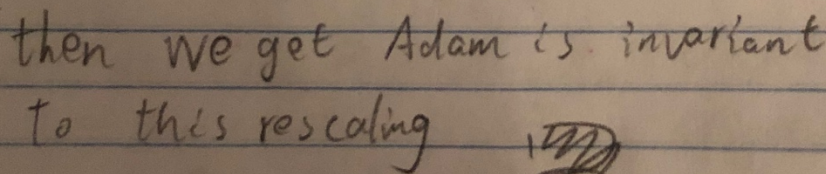 then we get Adam is invariant
to this rescaling